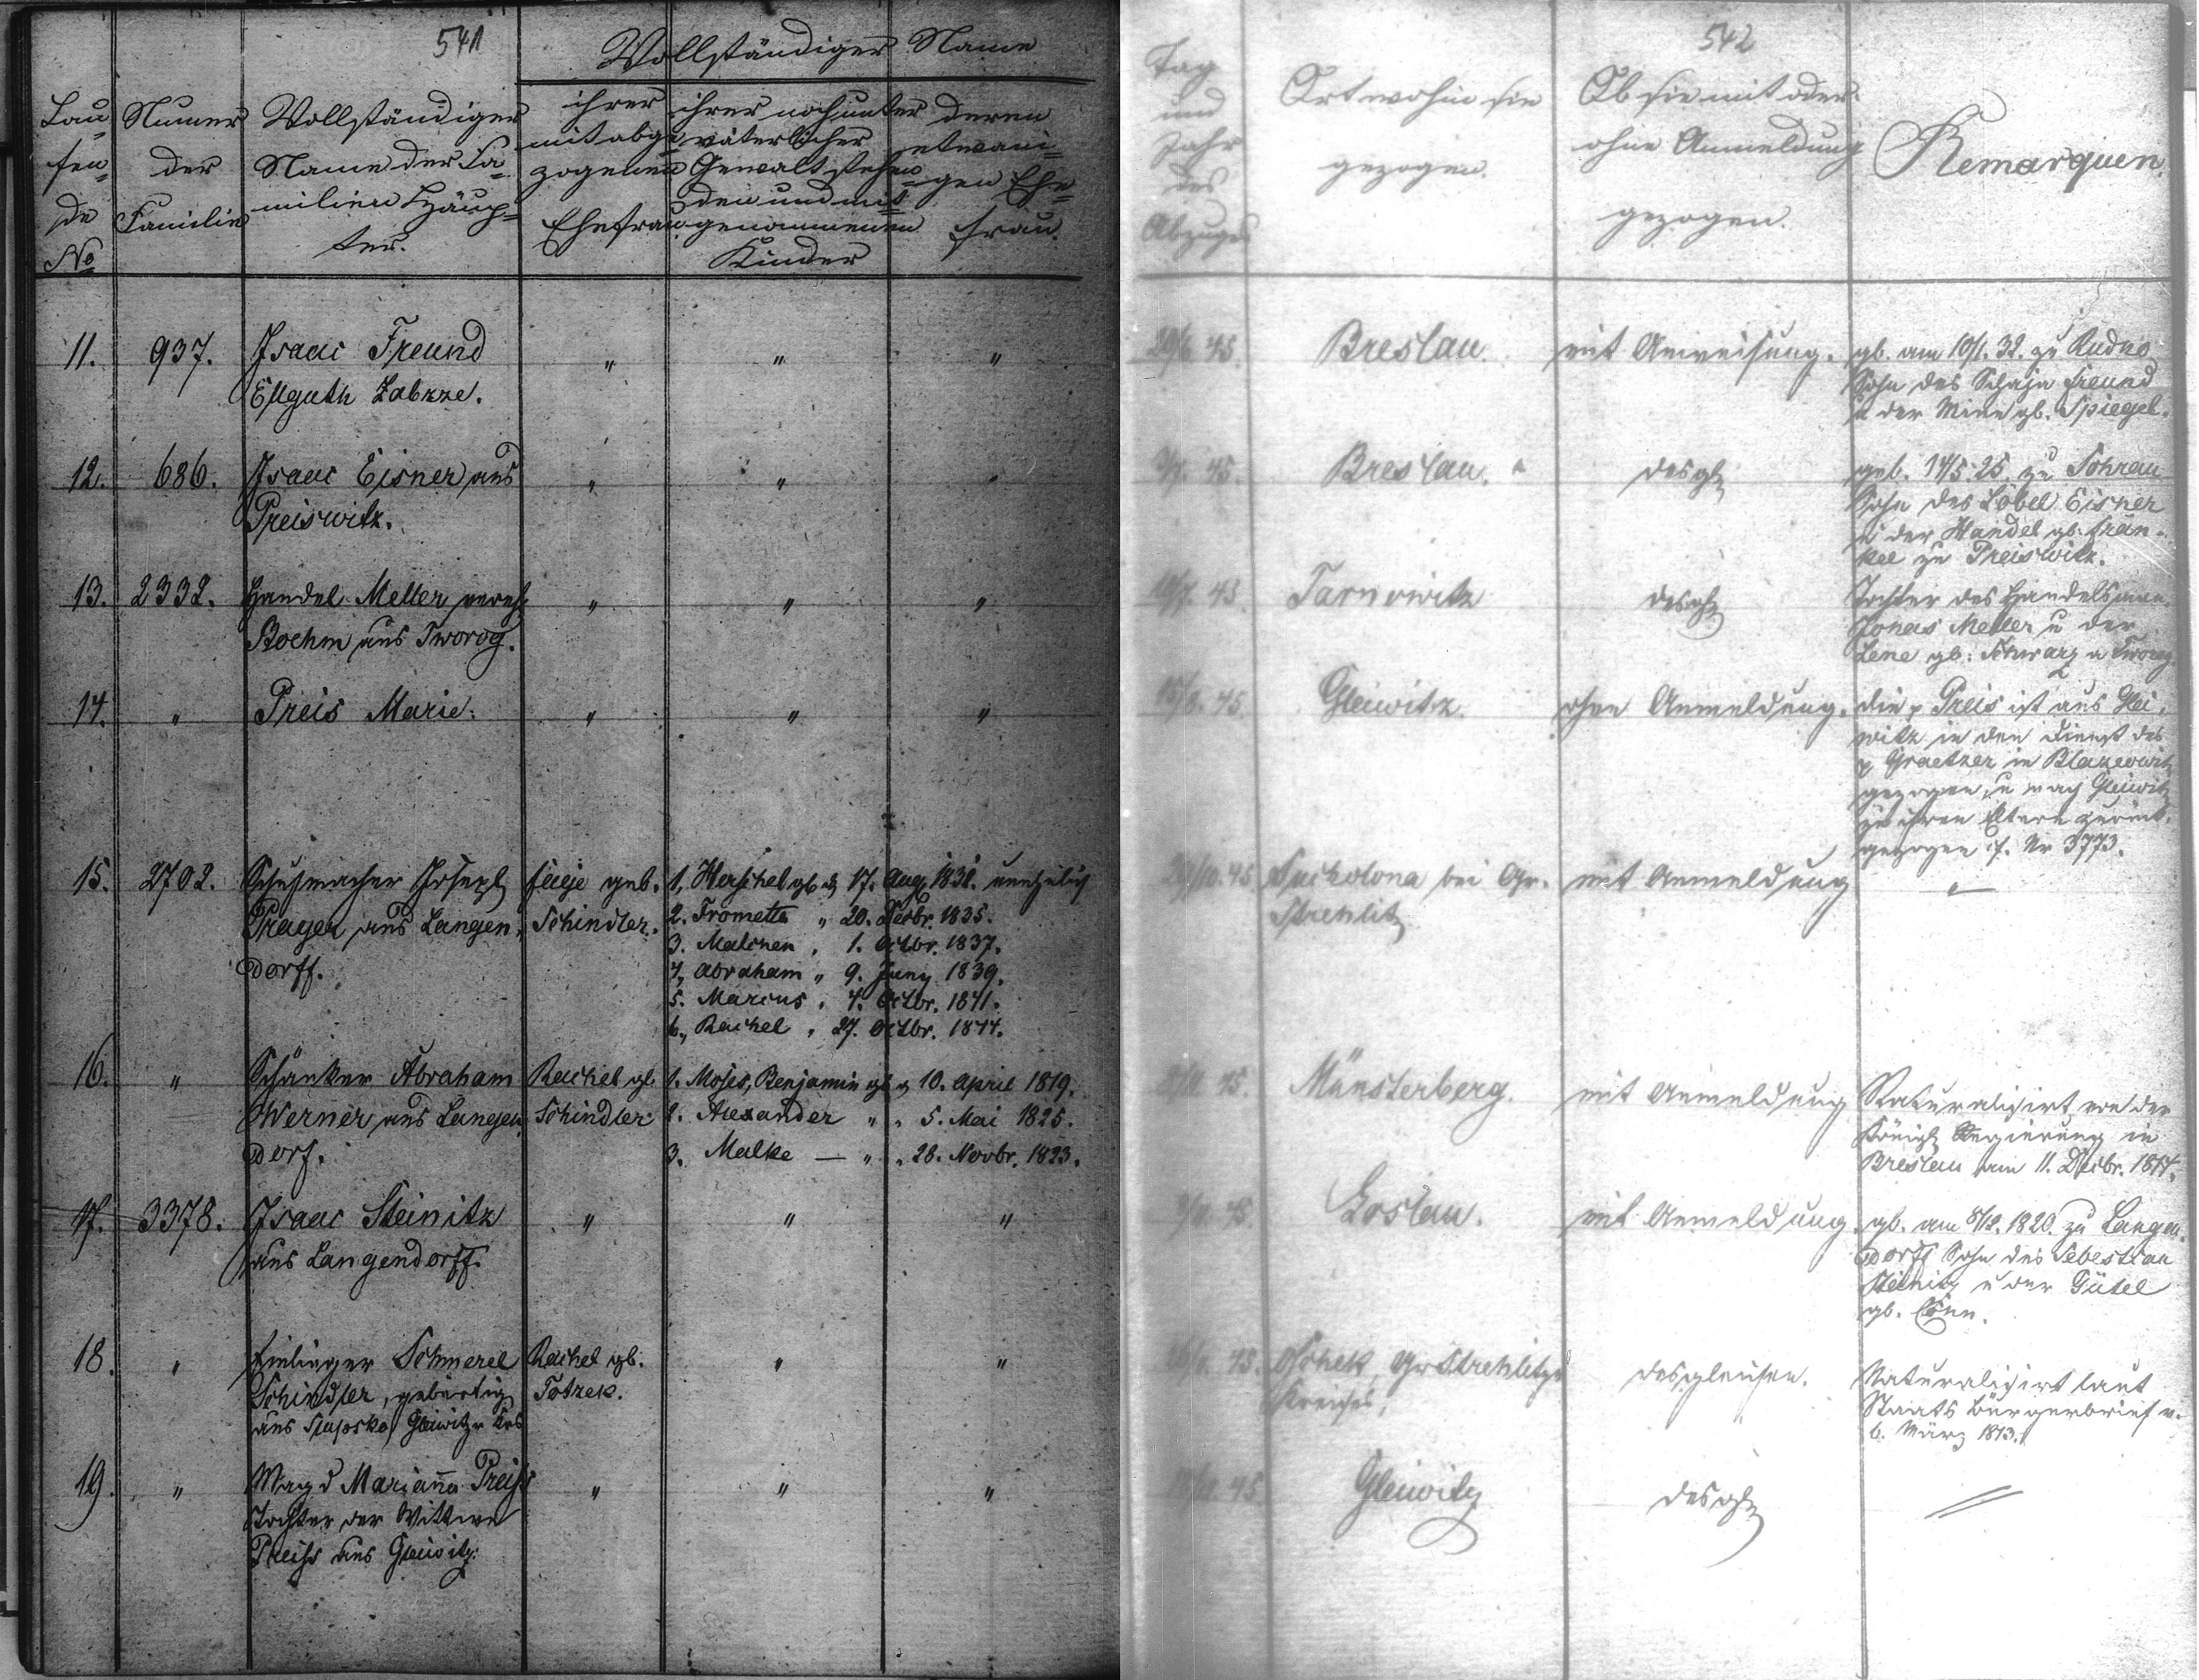 541
Vollständiger Name
Lau-
fen-
de
No
Numer
der
Familie
Vollständiger
Name der Fa-
milien Häup-
ter.
ihrer
mit abge-
zogenen
Ehefrau
ihrer noch unter
väterlicher
Gewalt stehen-
den und mit
genommenen
Kinder
deren
etwani-
gen Ehe-
frau.
11. 937. Isaac Freund " " "
Ellguth Zabrze.
12. 686. Isaac Eisner aus " " "
Preiswitz.
13. 2332. Handel Meller vereh. " " "
Boehm aus Tworog.
14. " Preis Marie. " " "
15. 2702. Schuhmacher Joseph
Prager aus Langen-
dorff.
Feige geb.
Schindler.
1, Herschel gb. d. 17. Aug. 1831. unehelich
2. Fromette " 20. Decbr. 1835.
3. Malchen " 1. Octbr. 1837.
4, Abraham " 9. Juny 1839.
5. Marcus " 4. Octbr. 1841.
6., Rachel " 27. Octbr. 1844.
16. " Schänker Abraham
Werner aus Langen-
dorf.
Rachel gb.
Schindler
1. Moses, Benjamin gb. d. 10. April 1819.
2. Alexander " " 5. Mai 1825.
3. Malke — " " 28. Novbr. 1823.
17. 3378. Isaac Steinitz " " "
aus Langendorff.
18. " Einlieger Schmerel
Schindler, gebürtig
aus Slupsko Gleiwitzr Krs
Rachel gb.
Totzek.
" "
19. " Magd Marianna Preiss " " "
Tochter der Wittwe
Preiss aus Gleiwitz.
542
Tag
und
Jahr
des
Abzuges
Ort wohin sie
gezogen.
Ob sie mit oder
ohne Anmeldung
gezogen.
Remarquen.
45. Breslau. mit Anweisung.
gb. am 10/1. 32. zu Rudno
Sohn des Schaja Freund
u der Mine gb. Spiegel.
45. Breslau. desgl
geb. 14/5. 25. zu Sohrau
Sohn des Löbel Eisner
u der Handel gb. Frän-
kel zu Preiswitz.
45 Tarnowitz desgl
Tochter des Handelsmann
Jonas Meller u der
Lene gb. Schwarz a Tworog
45 Gleiwitz. ohne Anmeldung.
die p Preis ist aus Glei-
witz in den Dienst des
p Graetzer in Blazeowitz
gezogen, u nach Gleiwitz
zu ihren Eltern zurück-
gezogen cf. Nr 3773.
45 Sucholona bei Gr.
Strehlitz
mit Anmeldung "
45. Münsterberg. mit Anmeldung
Naturalisirt von der
Königl Regierung in
Breslau am 11. Decbr. 1814.
45 Loslau. mit Anmeldung.
gb. am 8/12. 1820. zu Langen-
dorff Sohn des Sebestian
Steinitz u der Gütel
gb. Cohn.
45. Gr Strehlitzer
Kreises,
desgleichen.
Naturalisirt laut
Staats Bürgerbrief v.
6. März 1813.
45 Gleiwitz desgl